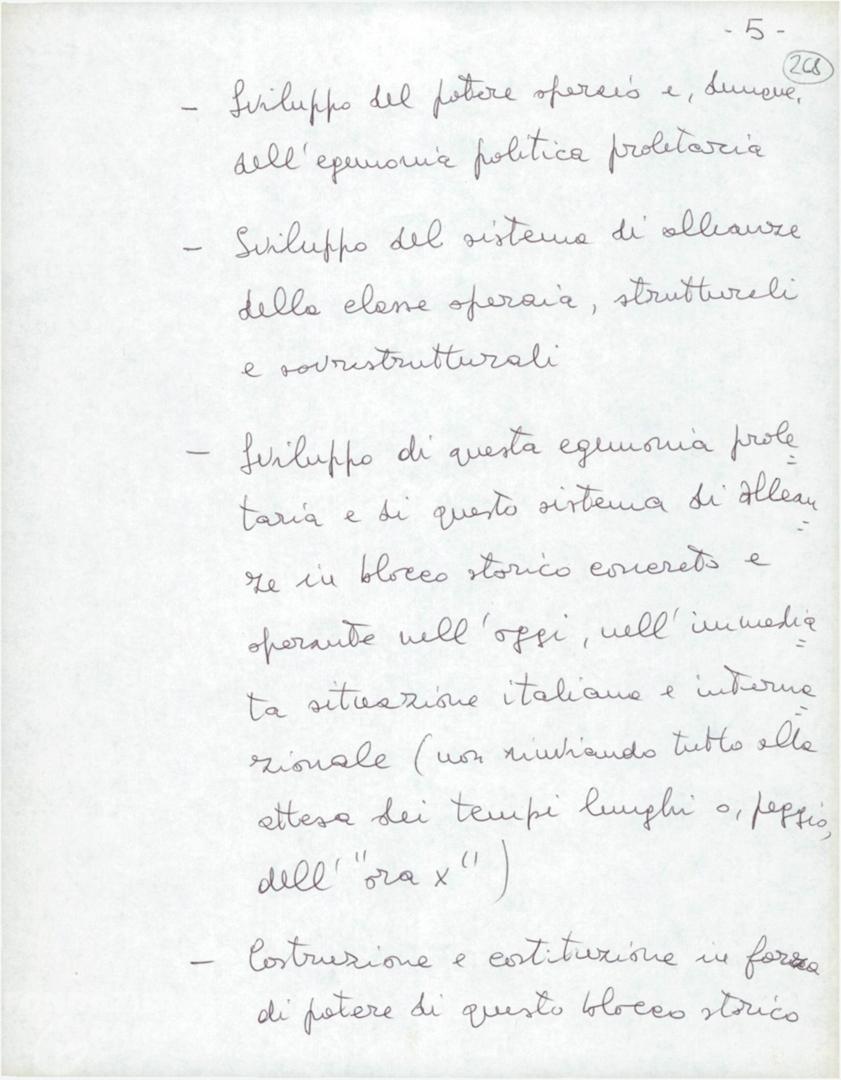 - 5 -
268
- Sviluppo del potere operaio e, dunque,
dell'egemonia politica proletaria
- Sviluppo del sistema di alleanze
della classe operaia, strutturali
e sovrastrutturali
- Sviluppo di questa egemonia prole=
taria e di questo sistema di allean=
ze in blocco storico concreto e
operante nell'oggi, nell'immedia=
ta situazione italiana e interna=
zionale (non rinviando tutto alla
attesa dei tempi lunghi o, peggio,
dell' "ora x")
- Costruzione e costituzione in forza
di potere di questo blocco storico